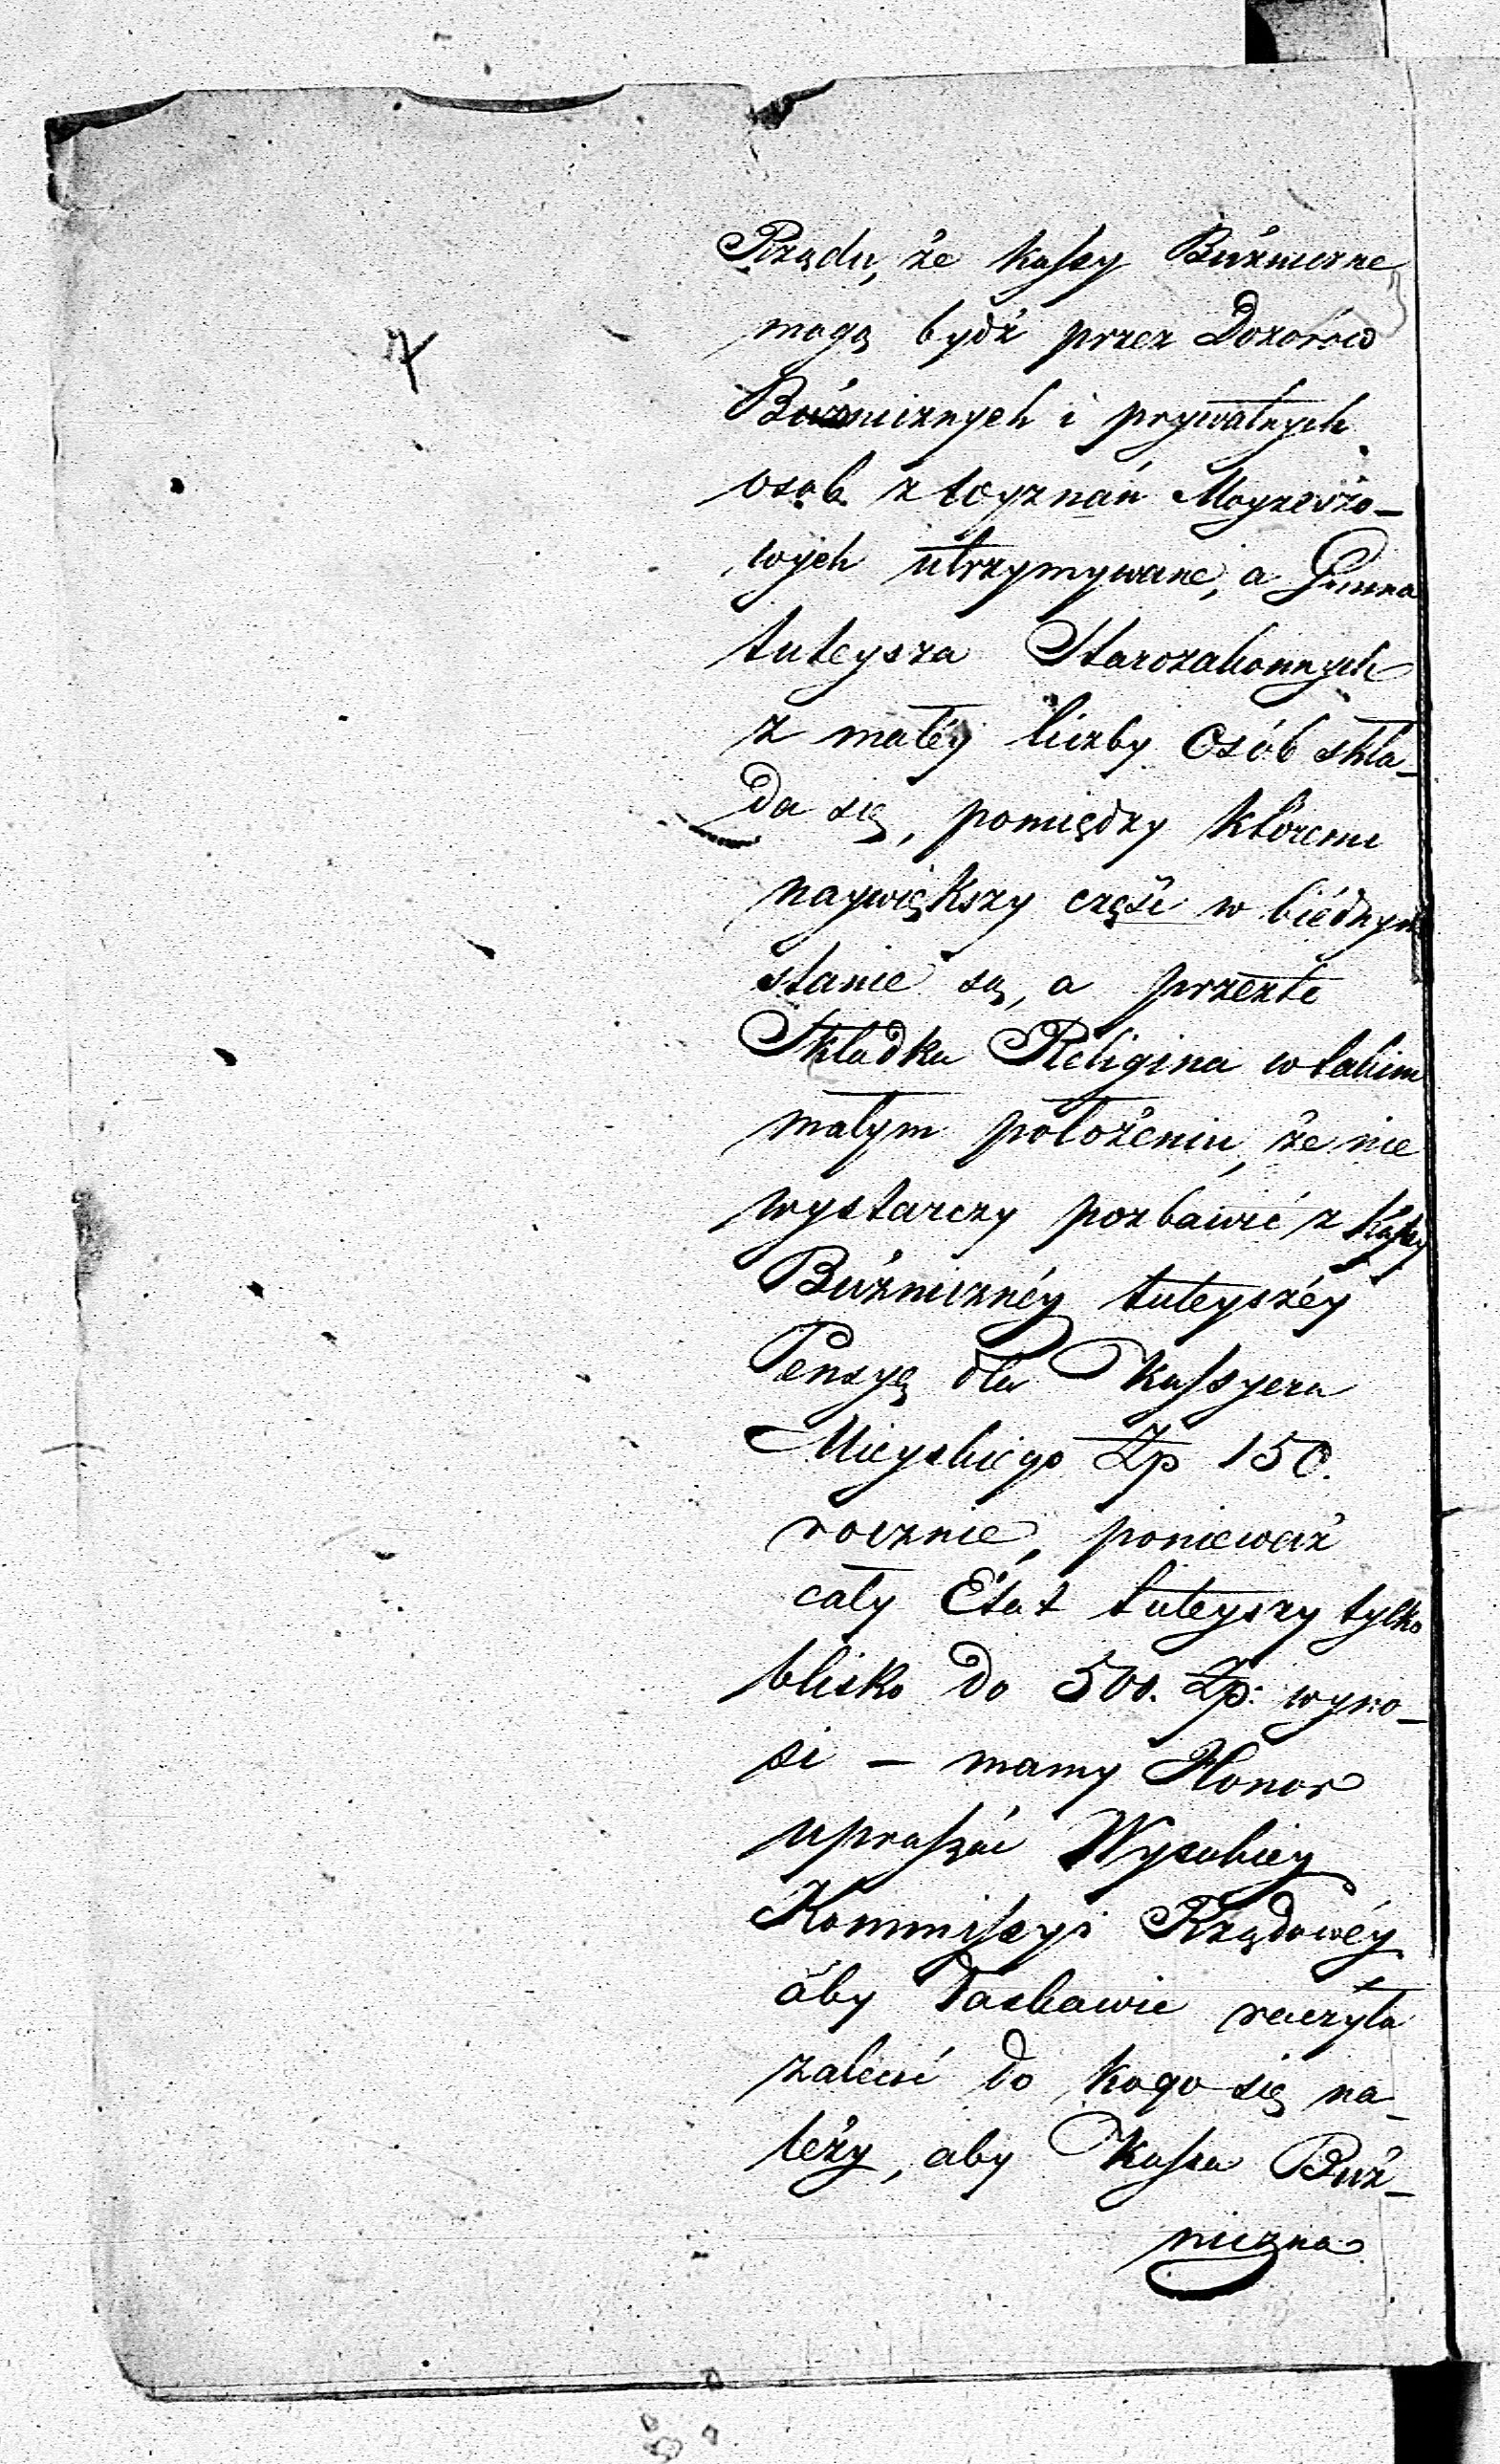 Rządu, że kassy Bużniczne
mogą bydź przez Dozorów
Bóżnicznych i prywatnych
osob z wyznań Mojżeszo-
wych utrzymywane, a Gmina
tuteysza Starozakonnych
z małéy liczby Osób skła-
da się, pomiędzy któremi
naywiększy część w biédnym
stanie są, a przezte
Składka Religina w takim
małym położeniu, że nie
wystarczy pozbawić z Kassy
Bużnicznéy tuteyszéy
Pensyę dla Kassyera
Mieyskiego Zp 150.
rocznie, ponieważ
cały Etat tuteyszy tylko
blisko do 500. Zp: wyno-
si – mamy Honor
upraszać Wysokiey
Kommissyi Rządowéy
aby łaskawie raczyła
zalecić do kogo się na-
leży, aby Kassa Buż-
niczna